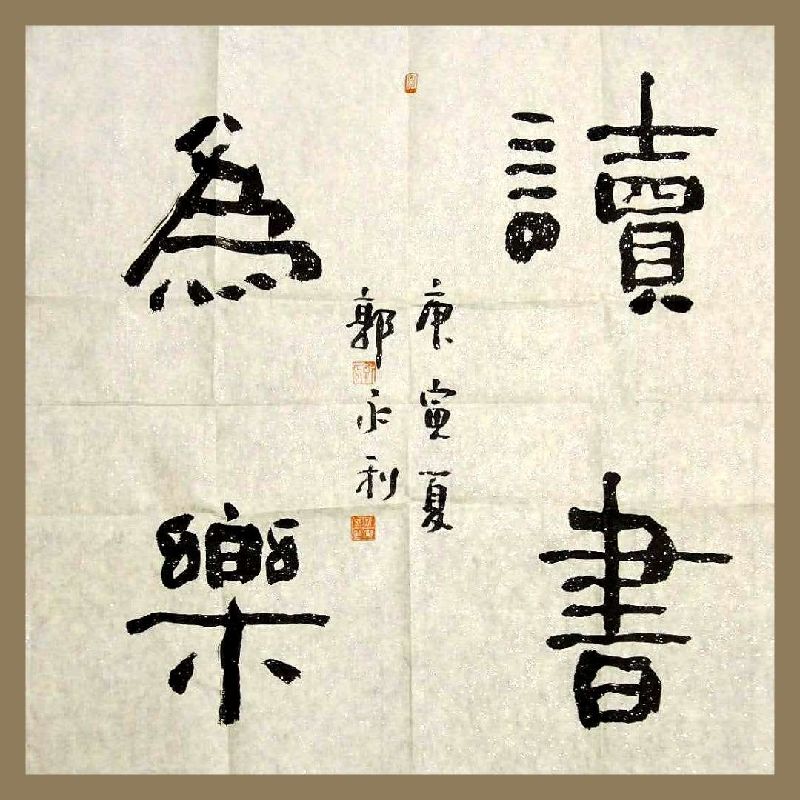 讀書
為樂
庚寅夏
郭永利